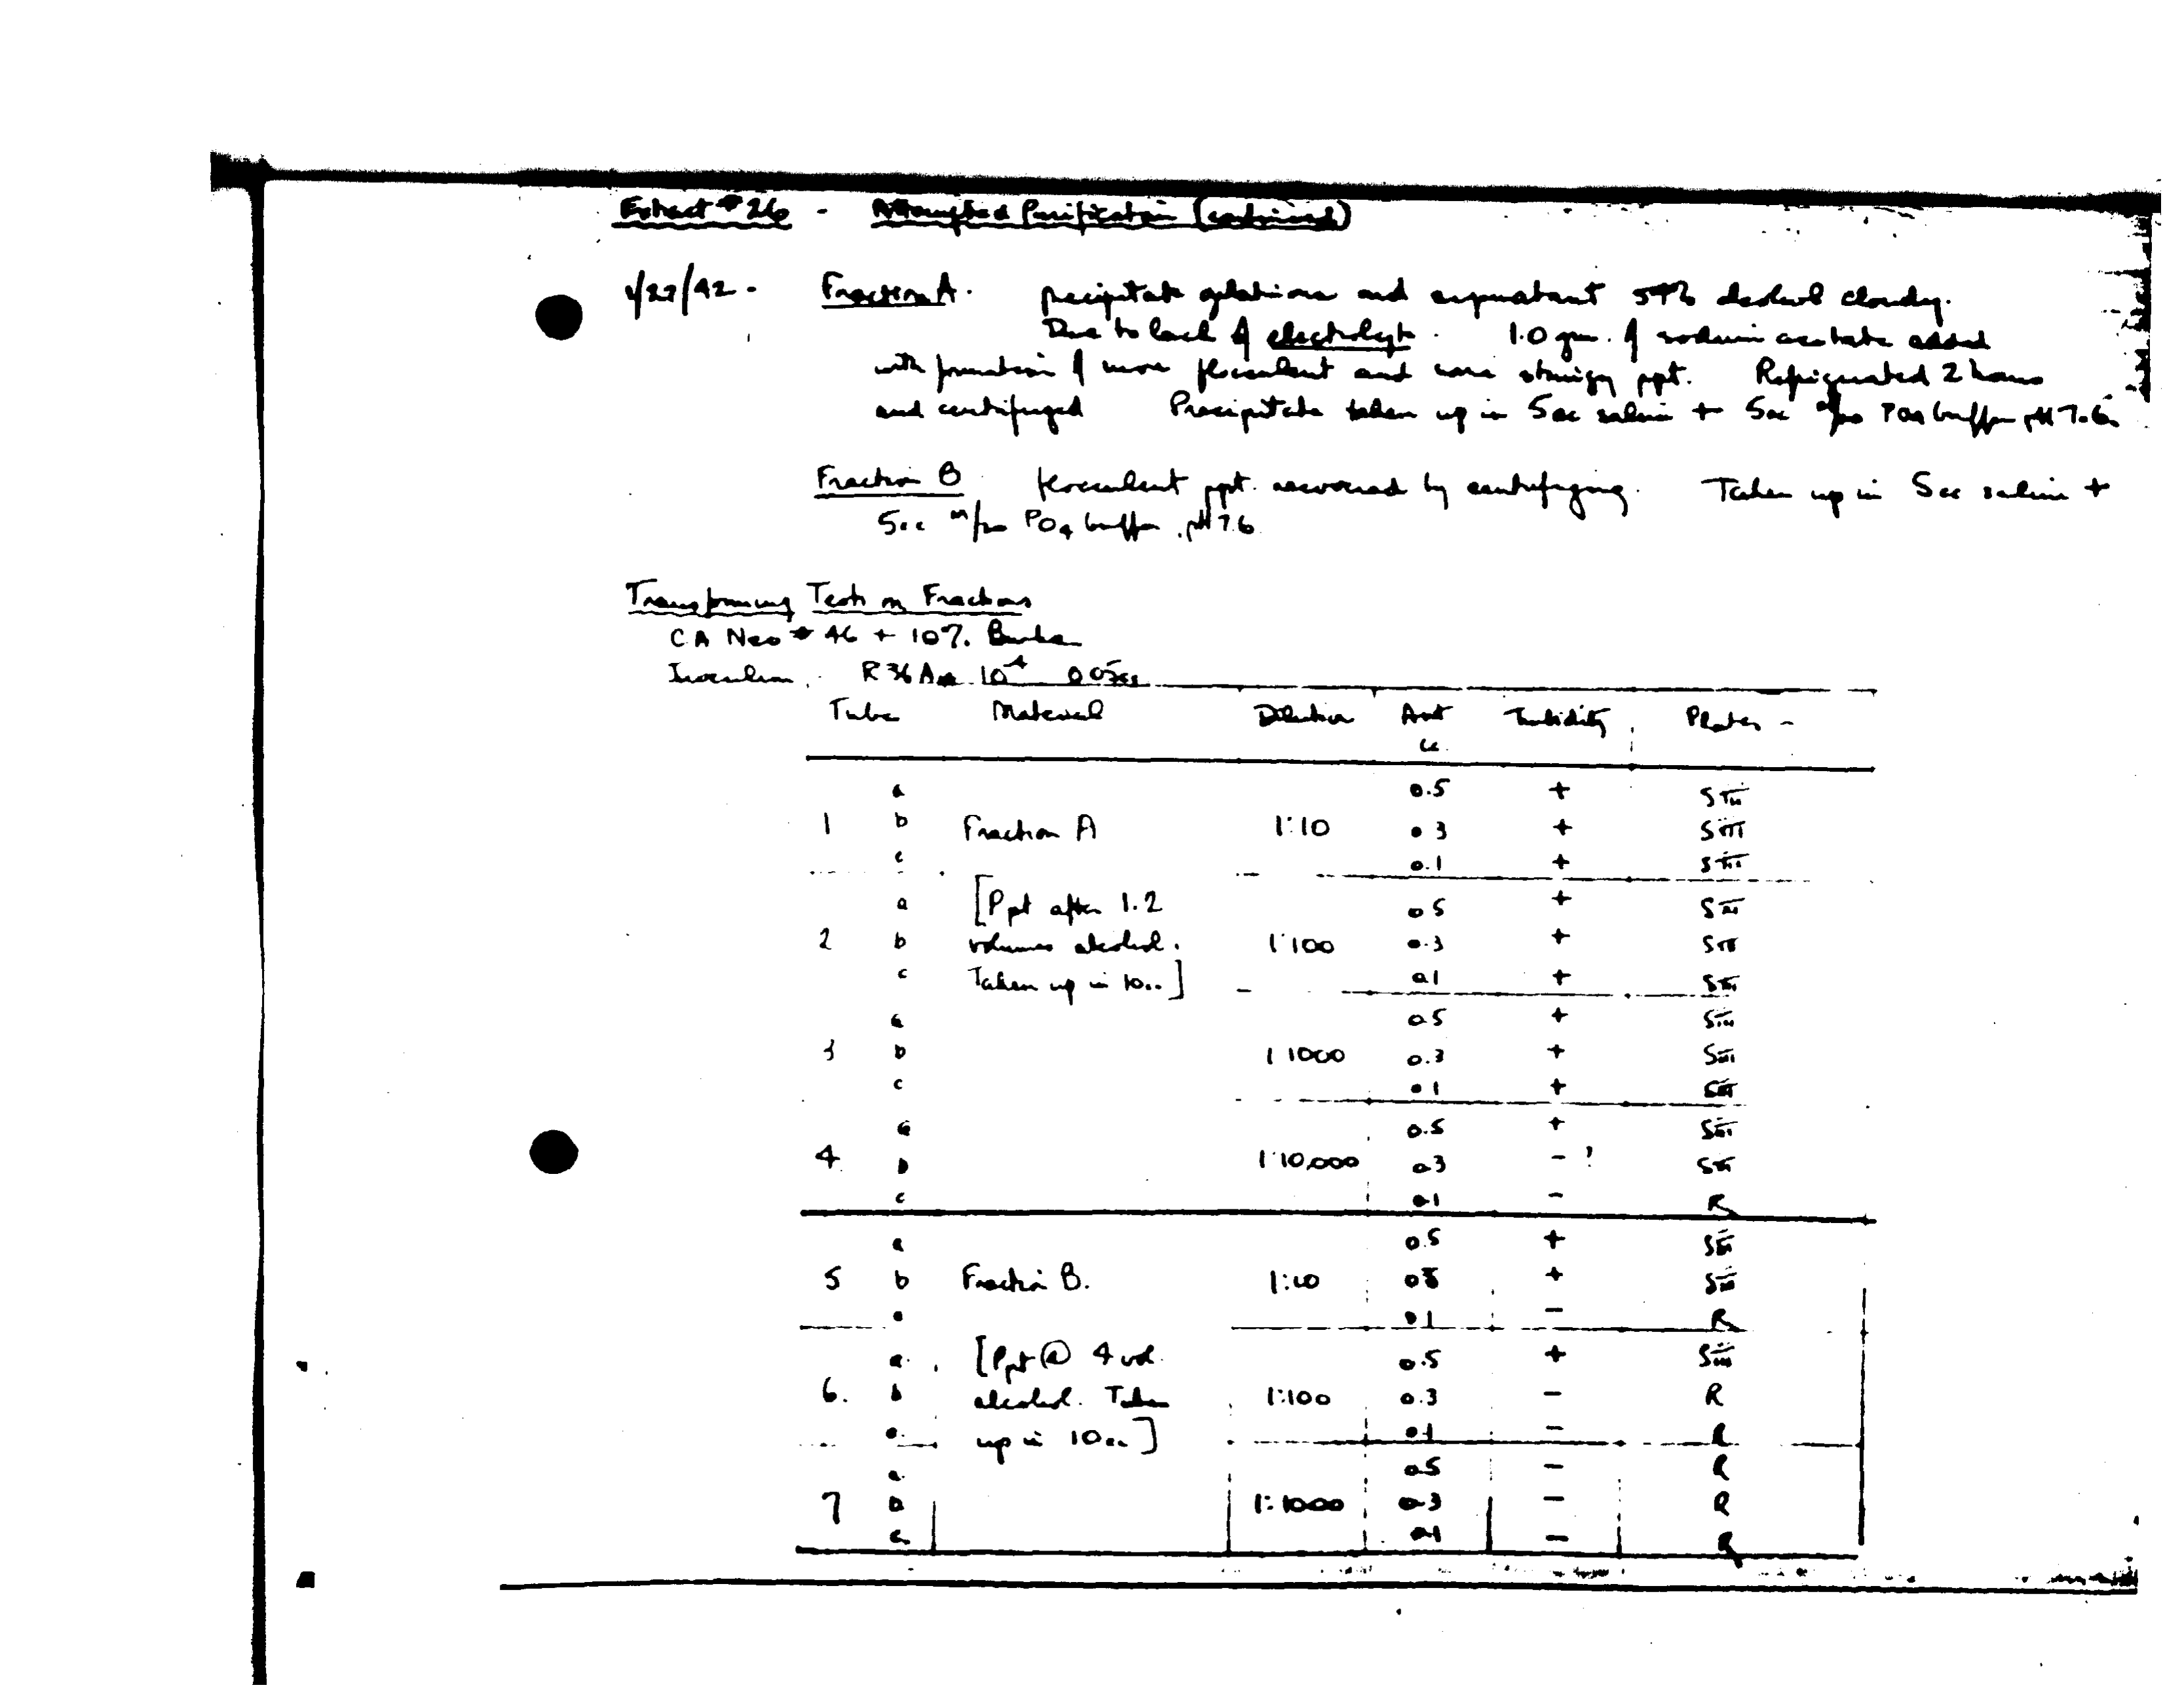 Extract #26 - Attempted Purification (continued)
1/27/42 - Fraction A. precipitate gelatinous and supernatant 54% alcohol cloudy.
Due to lack of electrolyte. 1.0 gm. of sodium acetate added
with formation of more flocculent and more stringy ppt. Refrigerated 2 hours
and centrifuged Precipitate taken up in 5cc saline + 5cc PO4 buffer pH 7.6
Fraction B flocculent ppt. recovered by centrifuging. Taken up in 5cc saline +
5cc PO4 buffer pH 7.6
Transforming Tests on Fractions
CA Neo # 46 + 10%
Inoculum. R36A 10-4 0.05cc
Tube Material Dilution Amt Turbidity Plates -
cc.
a 0.5 + SIII
1 b Fraction A 1:10 0.3 + SIII
c 0.1 + SIII
a [Ppt after 1.2 0.5 + SIII
2 b volumes alcohol. 1:100 0.3 + SIII
c Taken up in 10cc] 0.1 + SIII
a 0.5 + SIII
3 b 1:1000 0.3 + SIII
c 0.1 + SIII
a 0.5 + SIII
4 b 1:10,000 0.3 - ? SIII
c 0.1 - R
a 0.5 + SIII
5 b Fraction B. 1:10 0.3 + SIII
c 0.1 - R
a. [Ppt @ 4 vol. 0.5 + SIII
6. b alcohol. Taken 1:100 0.3 - R
c. up in 10cc] 0.1 - R
a. 0.5 - R
7 b 1:1000 0.3 - R
c. 0.1 - R